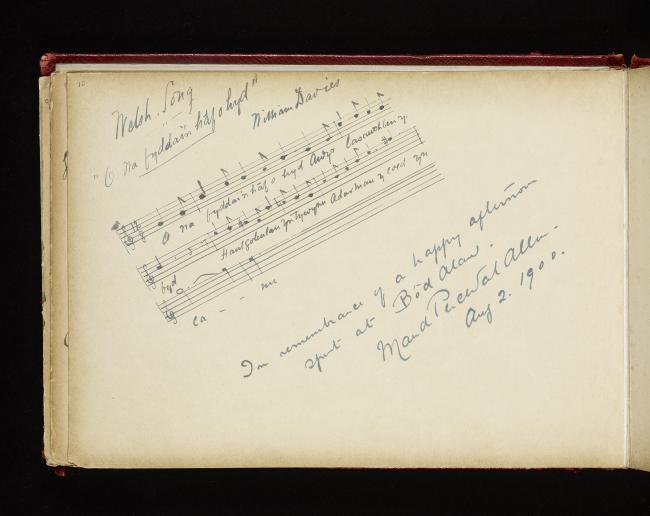 10
Welsh. Song
"O na byddai'n haf o hyd"
William Davies
O na byddai'n haf o hyd Awyr las uwchben y
byd Haul goleulan yn tywynnu Adar man y coed yn
ca - - nu
In remembrance of a happy afternoon
spent at Bod Alaw.
Maud Percival Allen.
Aug 2. 1900.